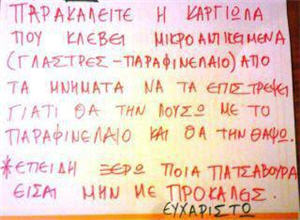 ΠΑΡΑΚΑΛΕΙΤΕ Η ΚΑΡΓΙΟΛΑ
ΠΟΥ ΚΛΕΒΕΙ ΜΙΚΡΟΑΝΤΙΚΕΙΜΕΝΑ
(ΓΛΑΣΤΡΕΣ-ΠΑΡΑΦΙΝΕΛΑΙΟ) ΑΠΟ
ΤΑ ΜΝΗΜΑΤΑ ΝΑ ΤΑ ΕΠΙΣΤΡΕΨΕΙ
ΓΙΑΤΙ ΘΑ ΤΗΝ ΛΟΥΣΩ ΜΕ ΤΟ
ΠΑΡΑΦΙΝΕΛΑΙΟ ΚΑΙ ΘΑ ΤΗΝ ΘΑΨΩ.
*ΕΠΕΙΔΗ ΞΕΡΩ ΠΟΙΑ ΠΑΤΣΑΒΟΥΡΑ
ΕΙΣΑΙ ΜΗΝ ΜΕ ΠΡΟΚΑΛΕΣ.
ΕΥΧΑΡΙΣΤΩ